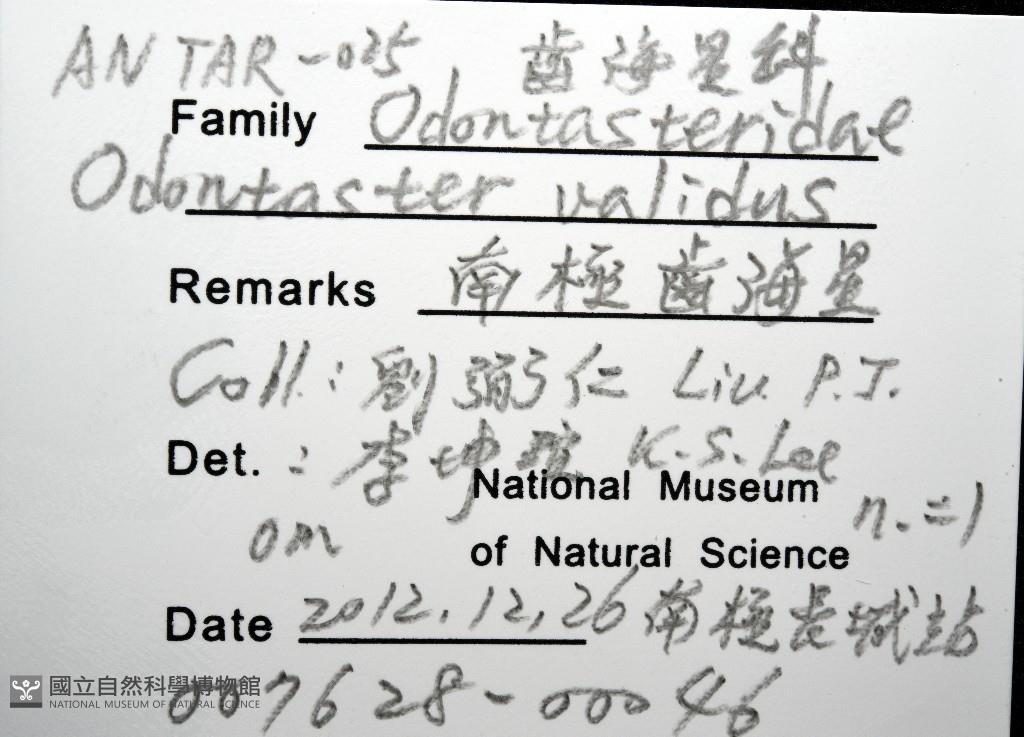 ANTAR-025 齒海星科
Family Odontasteridae
Odontaster validus
Remarks 南極齒海星
Coll.: 劉弼仁 Liu P.J.
Det. : 李坤瑄 K.S. Lee
National Museum
of Natural Science
0m n.=1
Date 2012.12.26 南極長城站
007628-00046
國立自然科學博物館
NATIONAL MUSEUM OF NATURAL SCIENCE